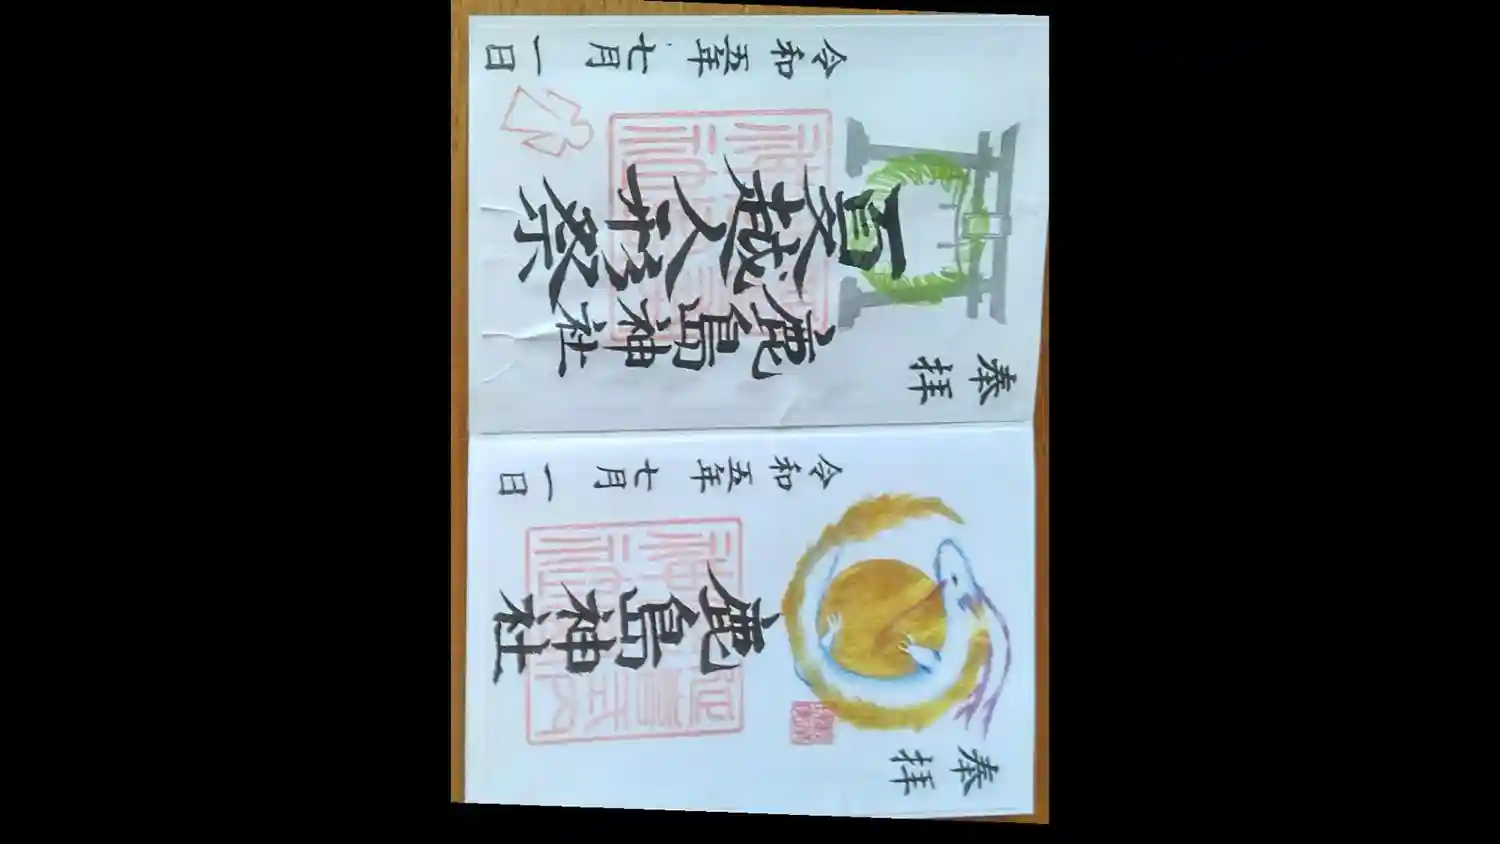 奉拝
鹿島神社
延喜式内
令和五年七月一日
奉拝
鹿島神社
夏越人形祭
令和五年七月一日